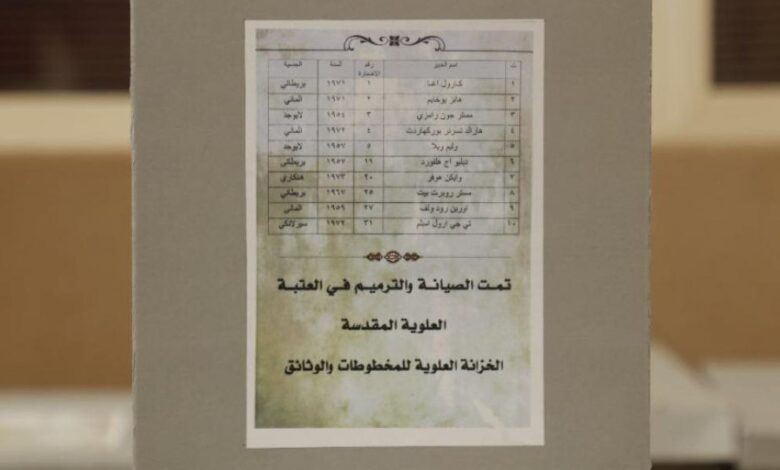 ت اسم الخبير رقم الاضبارة السنة الجنسية
١ كارول اغا ١ ١٩٧١ بريطاني
٢ هانز يوخايم ٢ ١٩٧١ الماني
٣ مستر جون رامزي ٣ ١٩٥٤ لايوجد
٤ هارالد تسرنر بوركهاردت ٤ ١٩٧٢ الماني
٥ وليم ويلا ٥ ١٩٥٧ لايوجد
٦ دبليو اج هلفورد ١١ ١٩٥٧ بريطاني
٧ وايكن هوفر ٢٠ ١٩٧٣ هنكاري
٨ مستر روبرت بيت ٢٥ ١٩٦٧ بريطاني
٩ اورين رود ولف ٢٧ ١٩٥٩ الماني
١٠ تي جي ارول اميلم ٣١ ١٩٧٢ سيرلانكي
تمت الصيانة والترميم في العتبة
العلوية المقدسة
الخزانة العلوية للمخطوطات والوثائق